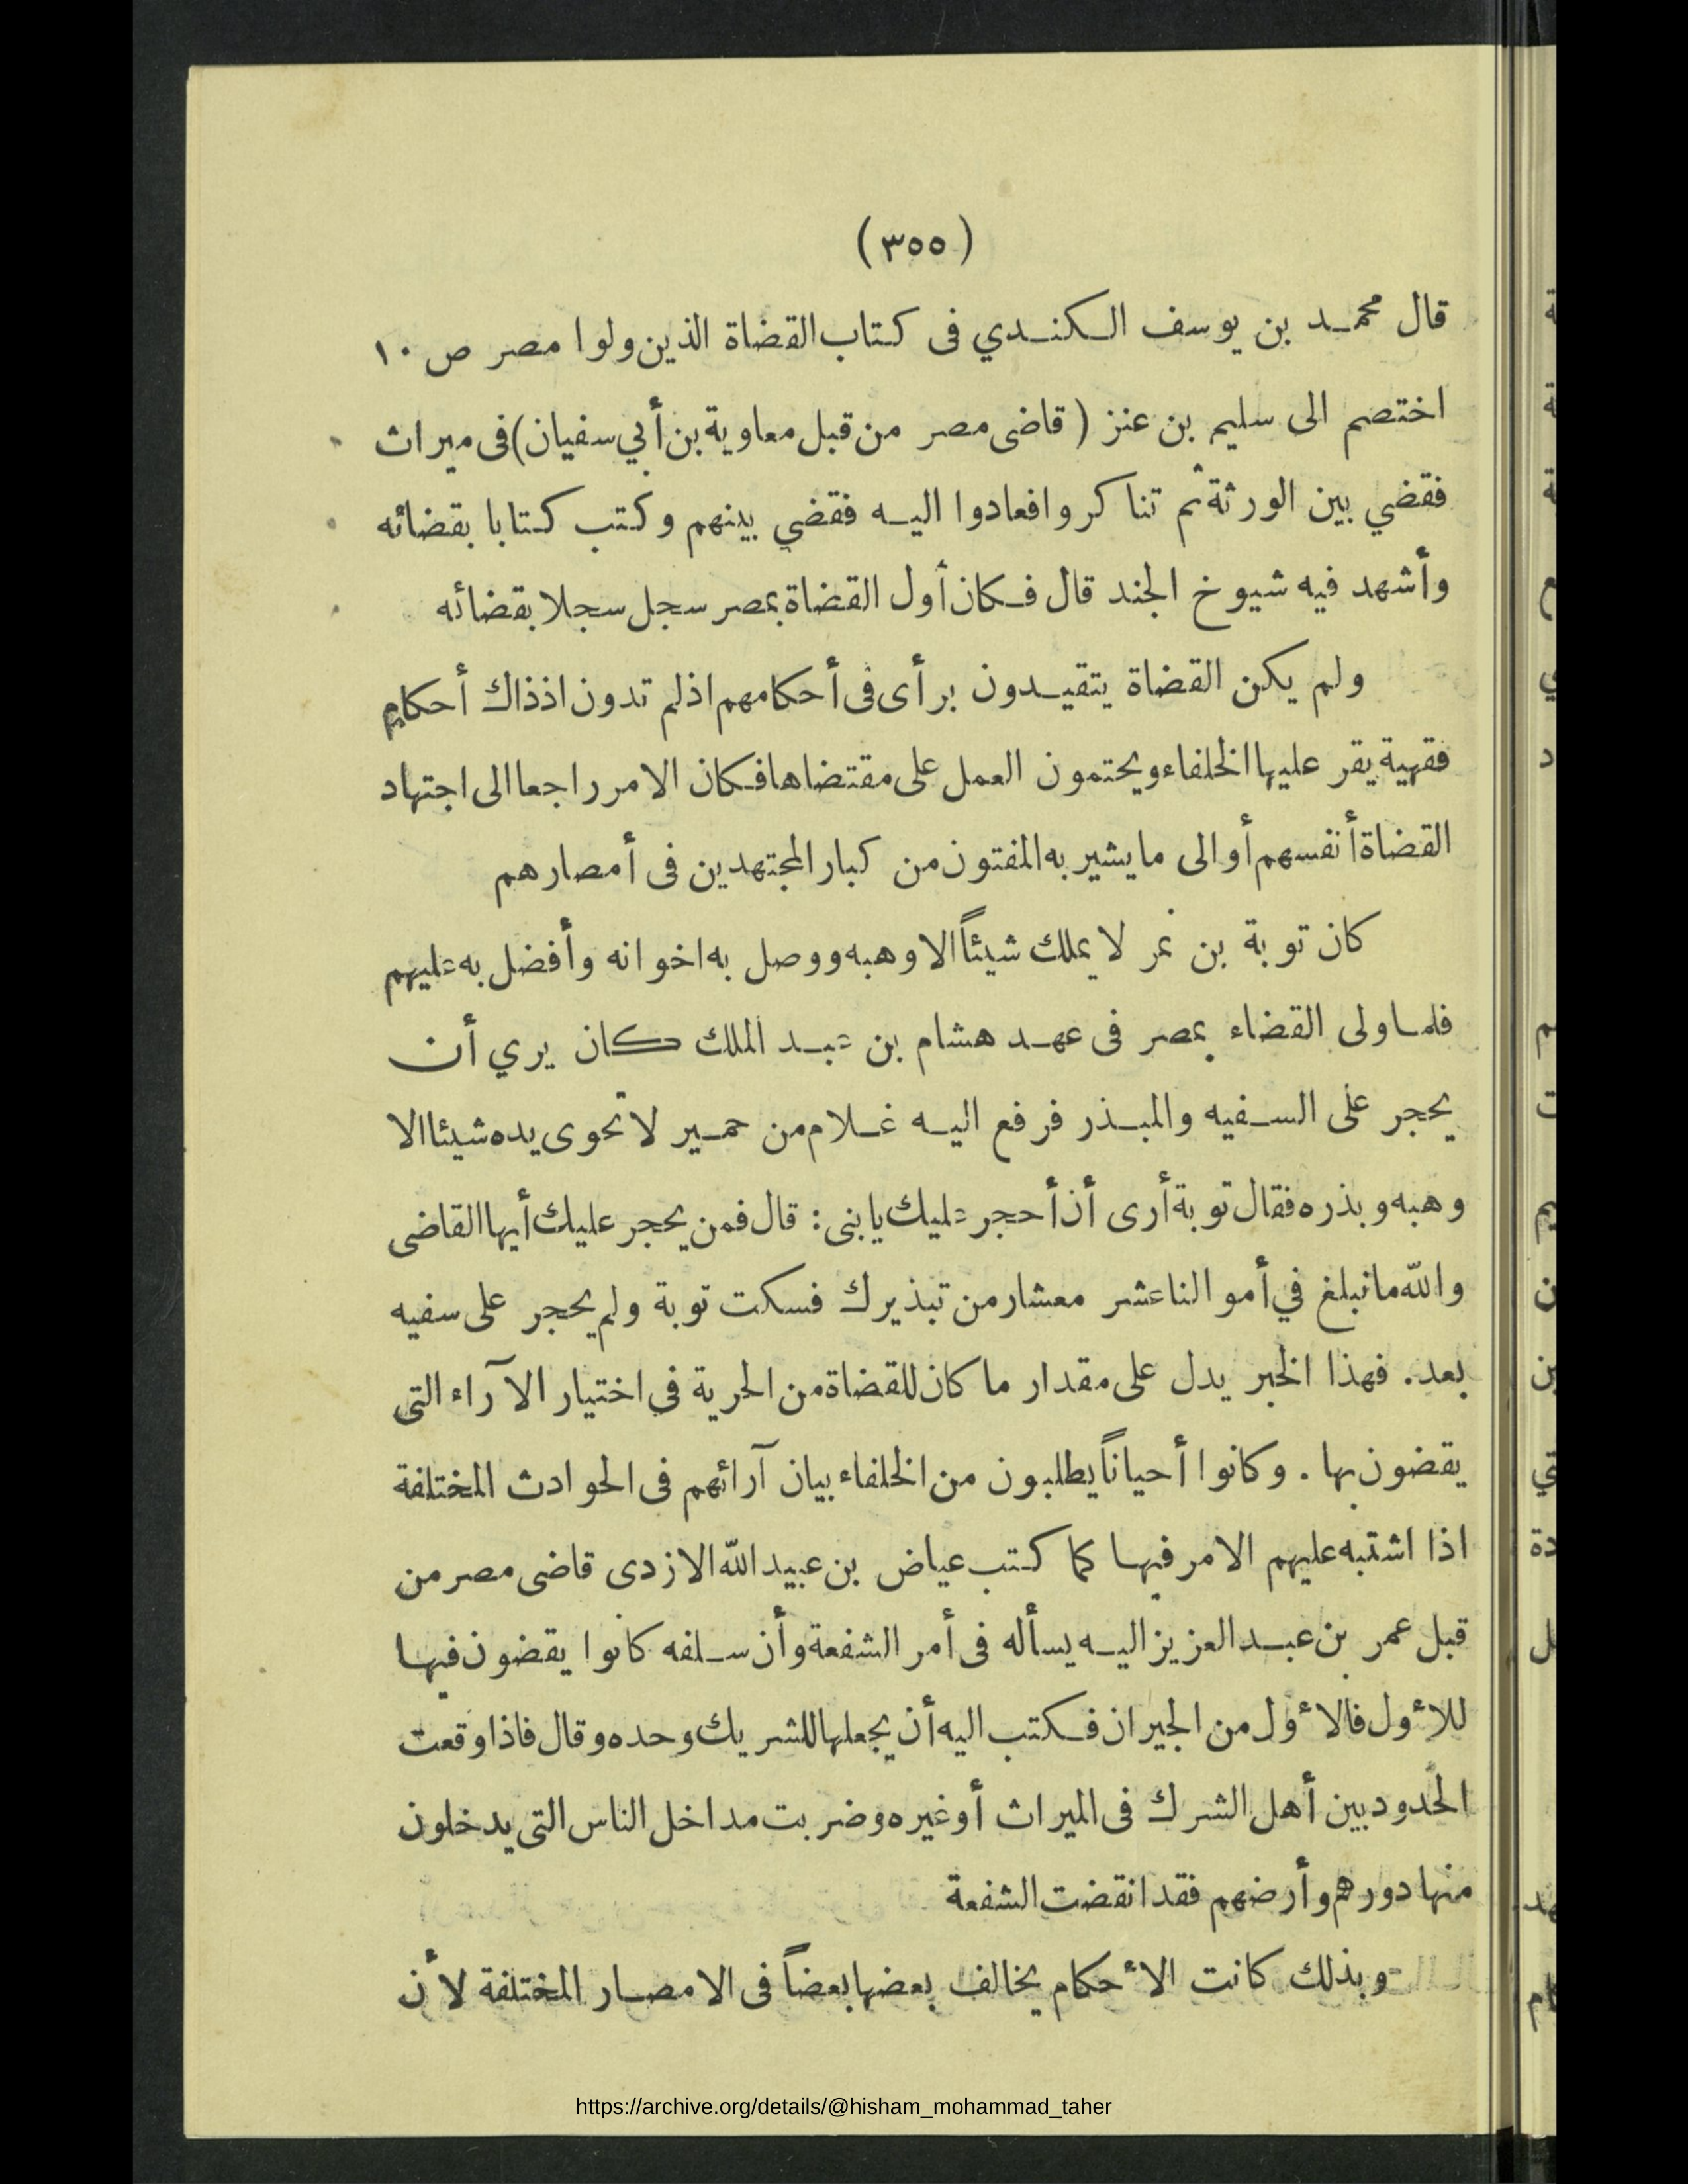 (٣٥٥)
قال محمد بن يوسف الكندي فى كتاب القضاة الذين ولوا مصر ص ١٠
اختصم الى سليم بن عنز ( قاضى مصر من قبل معاوية بن أبي سفيان) فى ميراث
فقضي بين الورثة ثم تناكروا فعادوا اليه فقضي بينهم وكتب كتابا بقضائه
وأشهد فيه شيوخ الجند قال فكان أول القضاة بمصر سجل سجلا بقضائه
ولم يكن القضاة يتقيدون برأى فى أحكامهم اذ لم تدون اذ ذاك أحكام
فقهية يقر عليها الخلفاء ويحتمون العمل على مقتضاها فكان الامر راجعا الى اجتهاد
القضاة أنفسهم أو الى ما يشير به المفتون من كبار المجتهدين فى أمصارهم
كان توبة بن نمر لا يملك شيئاً الا وهبه ووصل به اخوانه وأفضل به عليهم
فلما ولى القضاء بمصر فى عهد هشام بن عبد الملك كان يري أن
يحجر على السفيه والمبذر فرفع اليه غلام من حمير لا تحوى يده شيئا الا
وهبه وبذره فقال توبة أرى أن أحجر عليك يا بنى : قال فمن يحجر عليك أيها القاضى
والله ما نبلغ في أموالنا عشر معشار من تبذيرك فسكت توبة ولم يحجر على سفيه
بعد. فهذا الخبر يدل على مقدار ما كان للقضاة من الحرية فى اختيار الآراء التى
يقضون بها . وكانوا أحياناً يطلبون من الخلفاء بيان آرائهم فى الحوادث المختلفة
اذا اشتبه عليهم الامر فيها كما كتب عياض بن عبيد الله الازدى قاضى مصر من
قبل عمر بن عبد العزيز اليه يسأله فى أمر الشفعة وأن سلفه كانوا يقضون فيها
للأول فالأول من الجيران فكتب اليه أن يجعلها للشريك وحده وقال فاذا وقعت
الحدود بين أهل الشرك فى الميراث أو غيره وضربت مداخل الناس التى يدخلون
منها دورهم وأرضهم فقد انقضت الشفعة
وبذلك كانت الأحكام يخالف بعضها بعضاً فى الامصار المختلفة لأن
https://archive.org/details/@hisham_mohammad_taher